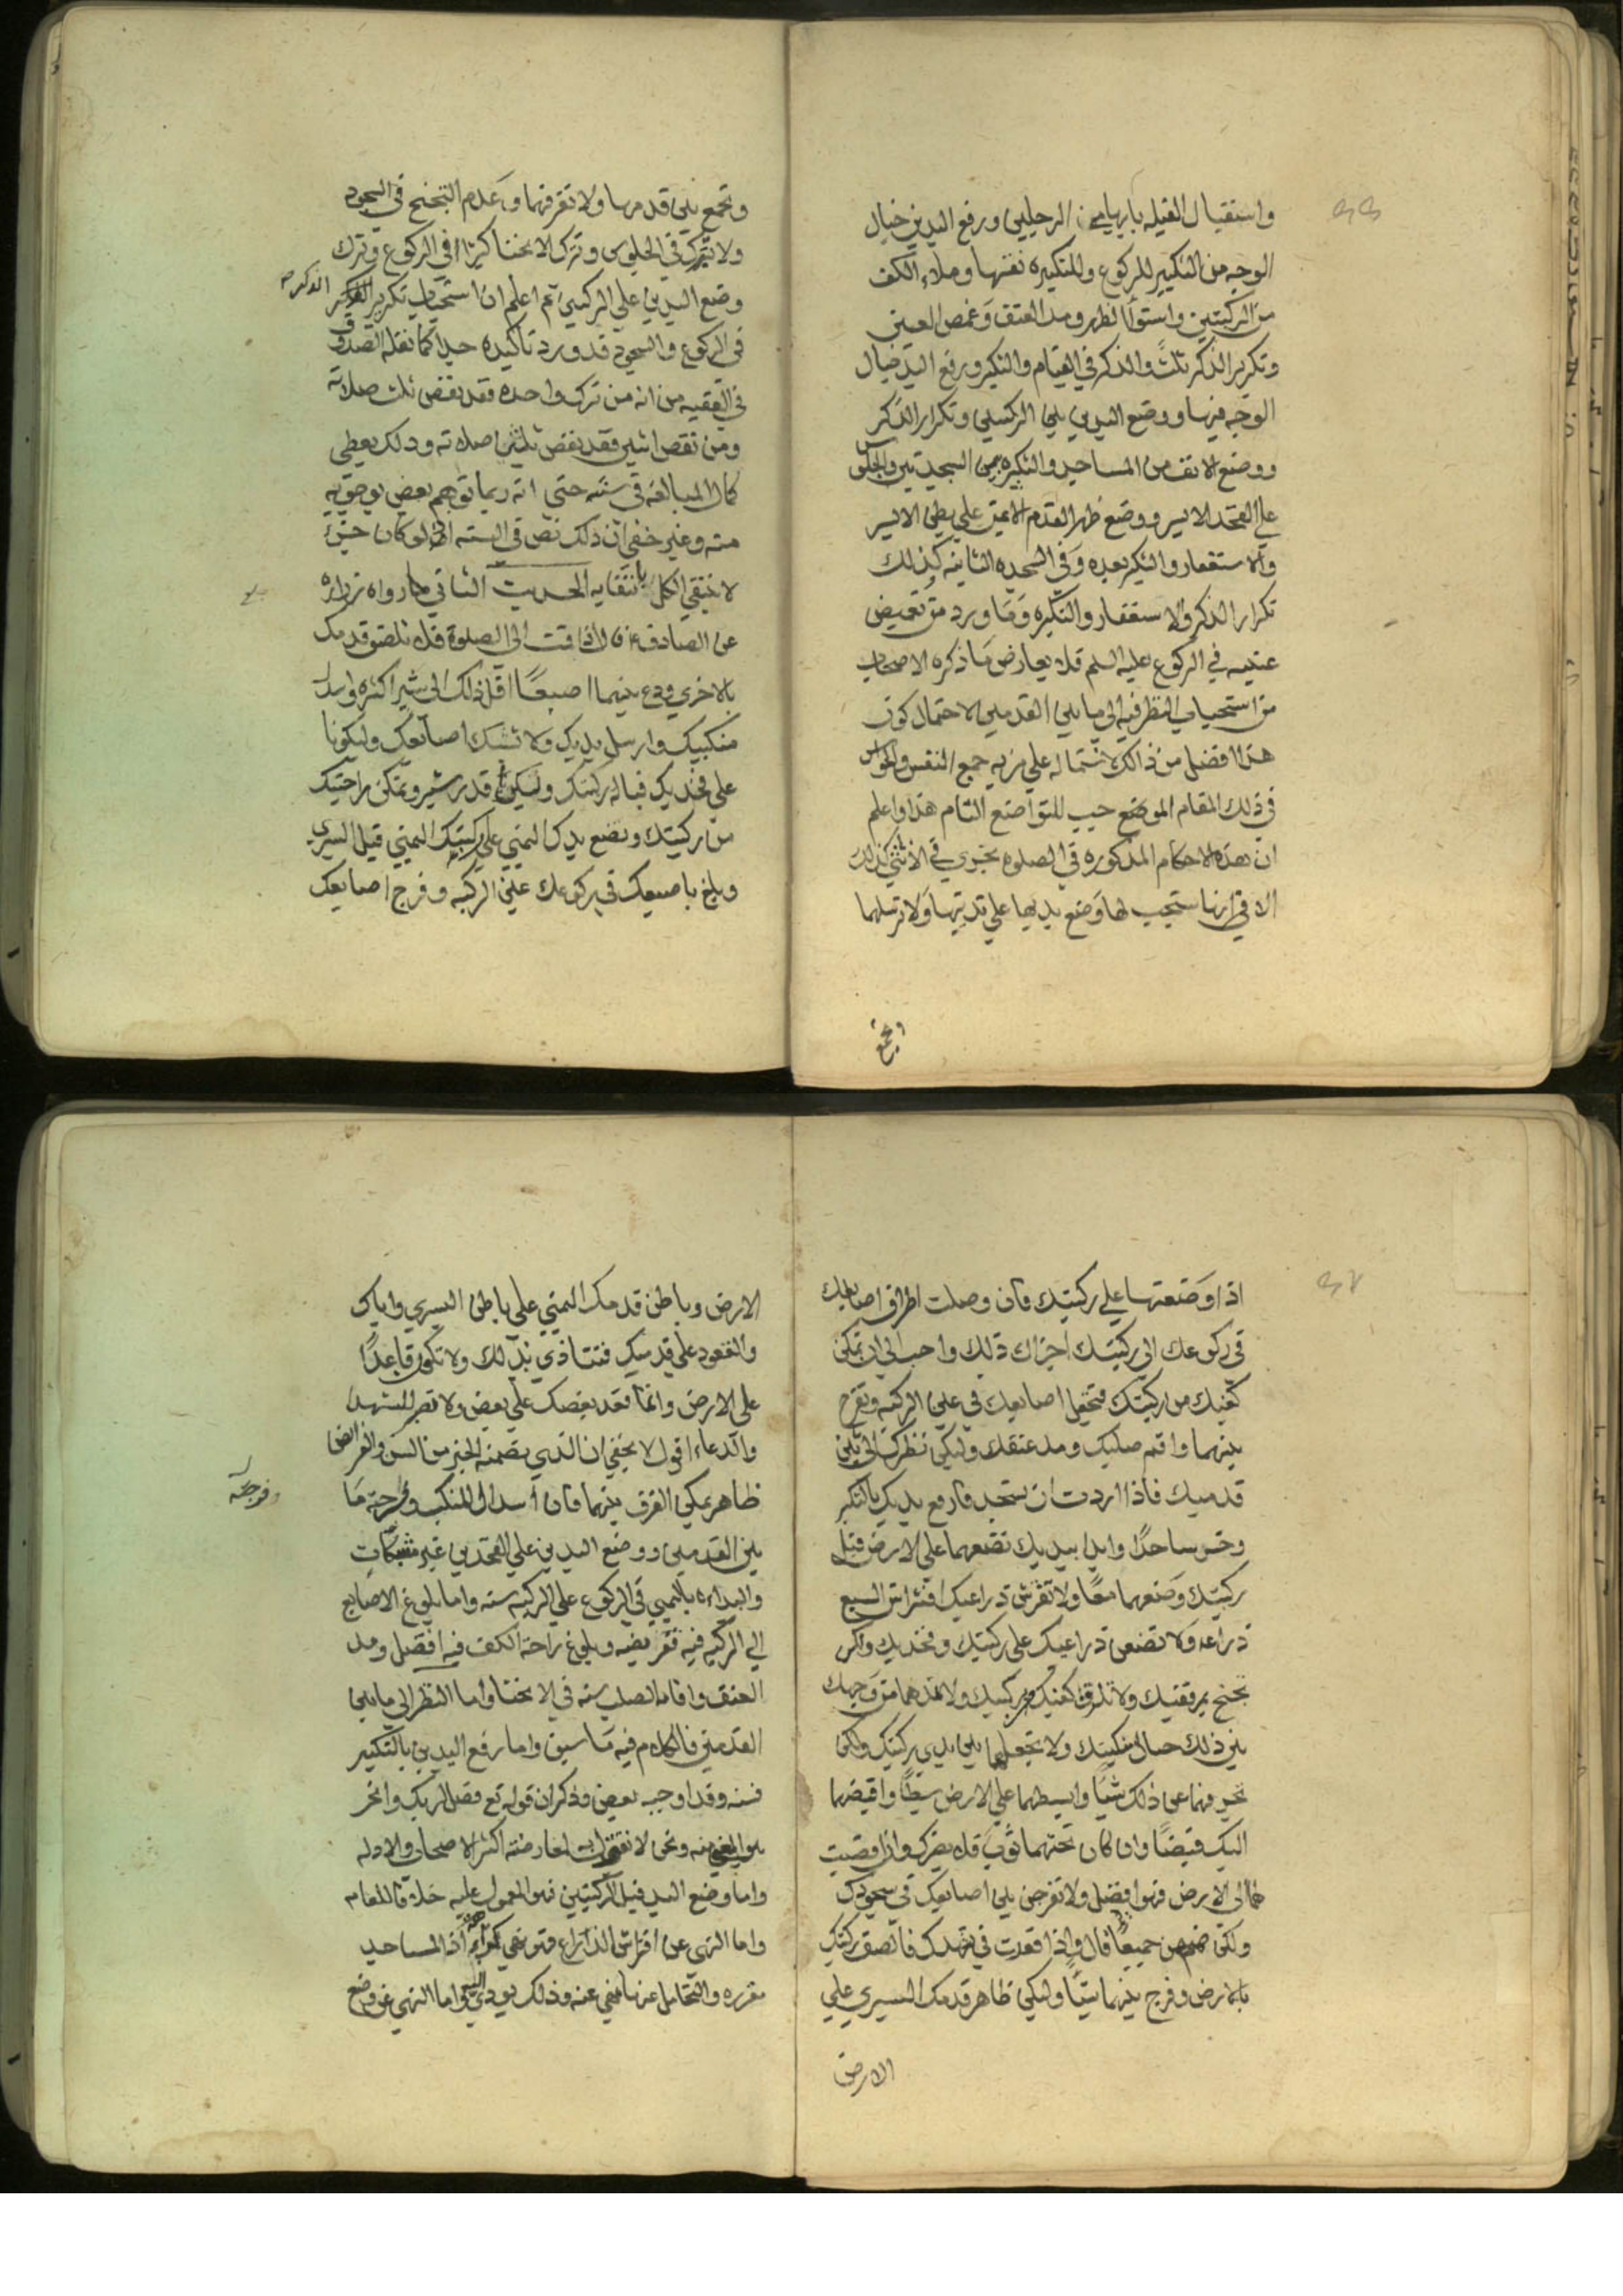 واستقبال القبله بابهامي الرجلين ورفع اليدين خيال
الوجه من التكبير للركوع وللتكبيره نفتها وملاء الكف
من الركبتين واستواا لظهر ومد العنق وغمض العين
وتكرير الذكر ثلث والذكر في القيام والتكبر ورفع اليد خيال
الوجه فيها ووضع اليدين يلي الركبتين وتكرار الذكر
ووضع الانف من المساجد والتكبيره بين السجدتين والجلوس
علي الفخد الايسر ووضع ظهر القدم الايمن علي بطن الايسر
والاستغفار والتكبر بعده وفي السجده الثانيه كذلك
تكرار الذكر والاستغفار والتكبيره وما ورد من تغميض
عينيه في الركوع عليه السلم فلا يعارض ما ذكره الاصحاب
من استحباب النظر فيه الي ما بين القدمين لاحتمال كون
هذا افضل من ذالك لاشتماله علي مزيه جمع النفس والحواس
في ذلك المقام الموضع حيب للتواضع التام هذا واعلم
ان هذه الاحكام المذكوره في الصلوه تجري في الانثي كذلك
الا في انها ستحب لها وضع يديها علي ثدييها ولا ترسلهما
وتجمع
وتجمع بين قدميها ولا تفرقهما وعدم التجنح في السجود
ولا تترك في الجلوس وترك الانحناء كثيرا في الركوع وترك
وضع اليدين علي الركبتين ثم اعلم ان استحباب تكرير الذكر
في الركوع والسجود قد ورد تاكيده جدا كما نقله الصدوق
في الفقيه من انه من ترك واحده فقد نقص ثلث صلاته
ومن نقص اثنين فقد نقص ثلثي صلاته وذلك يعطي
كمال المبالغه في سننه حتي انه ربما توهم بعض بوجوبه
منه وغير خفي ان ذلك نص في السنه اذ لو كان حينئذ
لا نتفي الكل بانتفايه الحديث الثاني ما رواه زراره
عن الصادق قال اذا قمت الي الصلوة فلا تلصق قدمك
بالاخري ودع بينهما اصبعا اقل ذلك الي شبر اكثره واسدل
منكبيك وارسل يديك ولا تشبك اصابعك وليكونا
علي فخديك قباله ركبتك وليكن قدر شبر وتمكن راحتيك
من ركبتك وتضع يدك اليمني علي ركبتك اليمني قبل اليسري
وبلغ باصبعك في ركوعك عين الركبه وفرج اصابعك
اذا وضعتها علي ركبتك فان وصلت اطراف اصابعك
في ركوعك الي ركبتك اجزاك ذلك واحب الي ان تمكن
كفيك من ركبتك فتجعل اصابعك في عين الركبه وتفرج
بينهما واقم صلبك ومد عنقك وليكن نظرك الي بين
قدميك فاذا اردت ان تسجد فارفع يديك بالتكبر
وخر ساجدا وابدا بيديك تضعهما علي الارض قبل
ركبتك وضعهما معا ولا تفرش ذراعيك افتراش السبع
ذراعه ولا تضعن ذراعيك علي ركبتك وفخديك ولكن
تجنح بمرفقيك ولا تلزق كفيك بركبتيك ولا تدنهما من وجهك
بين ذلك حيال منكبيك ولا تجعلهما بين يدي ركبتك ولكن
تحرفهما عن ذلك شيا وابسطهما علي الارض بسطا واقبضهما
اليك قبضا وان كان تحتهما ثوب فلا يضرك وان افضيت
بهما الي الارض فهو افضل ولا تفرجن بين اصابعك في سجودك
ولكن ضمهن جميعا قال واذا قعدت في تشهدك فالصق ركبتك
بالارض وفرج بينهما شيا وليكن ظاهر قدمك اليسري علي
الارض
الارض وباطن قدمك اليمني علي باطن اليسري واياك
والقعود علي قدميك فتتاذي بذلك ولا تكون قاعدا
علي الارض وانما قعد بعضك علي بعض ولا تصبر للتشهد
والدعاء اقول لا يخفي ان الذي يضمنه الخبر من السنن والفرايض
ظاهر يمكن الفرق بينهما فان اسدال المنكب وفرجة ما
بين القدمين ووضع اليدين علي الفخدين غير مشبكات
والبداءه باليمني في الركوع علي الركبه سنه واما بلوغ الاصابع
الي الركبه فيه ففريضه وبلوغ راحة الكف فيه افضل ومد
العنق واقامه الصلب سنه في الانحناء واما النظر الي ما بين
القدمين فالكلام فيه ما سبق واما رفع اليدين بالتكبير
فسنه وقد اوجبه بعض وذكر ان قوله تع فصل لربك وانحر
ونحن لا نقول به لمعارضته اكثر الاصحاب والادله
واما وضع اليد قبل الركبتين فهو المعمول عليه خلافا للعام
واما النهي عن افتراش الذراع فتنزيهي اذ المساجد
مقرره والتحامل عنها منفي عنه وذلك يودي اليه واما النهي عن وضع